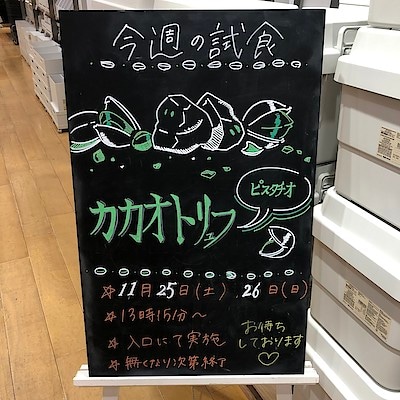 今週の試食
ピスタチオ
カカオトリュフ
11月25日(土) 26日(日)
13時15分〜
入口にて実施
無くなり次第終了
お待ち
しております♡